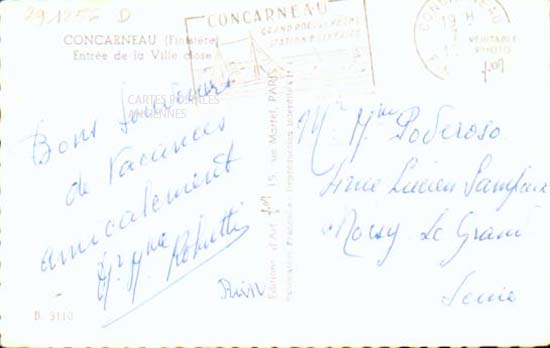 291256 D
CONCARNEAU (Finistère)
Entrée de la Ville close
CONCARNEAU
GRAND PORT DE PÊCHE
STATION BALNÉAIRE
CONCARNEAU
19 H
VÉRITABLE
PHOTO
CARTES POSTALES
ANCIENNES
Bons Souvenirs
de Vacances
amicalement
Mr Mme
B. 5110
Editions d'Art 15, rue Martel, PARIS
Reproduction interdite
Mr Mme Poderoso
Lucien Sampaix
Noisy Le Grand
Seine